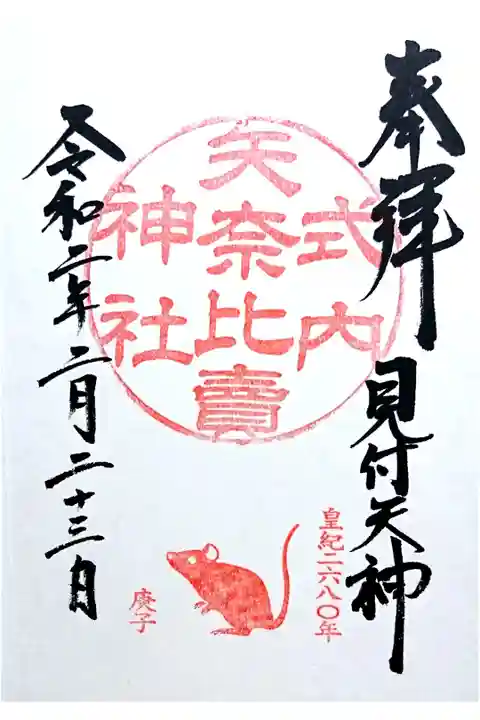 奉拝
見付天神
式内
矢奈比賣
神社
皇紀二六八〇年
庚子
令和二年二月二十三日